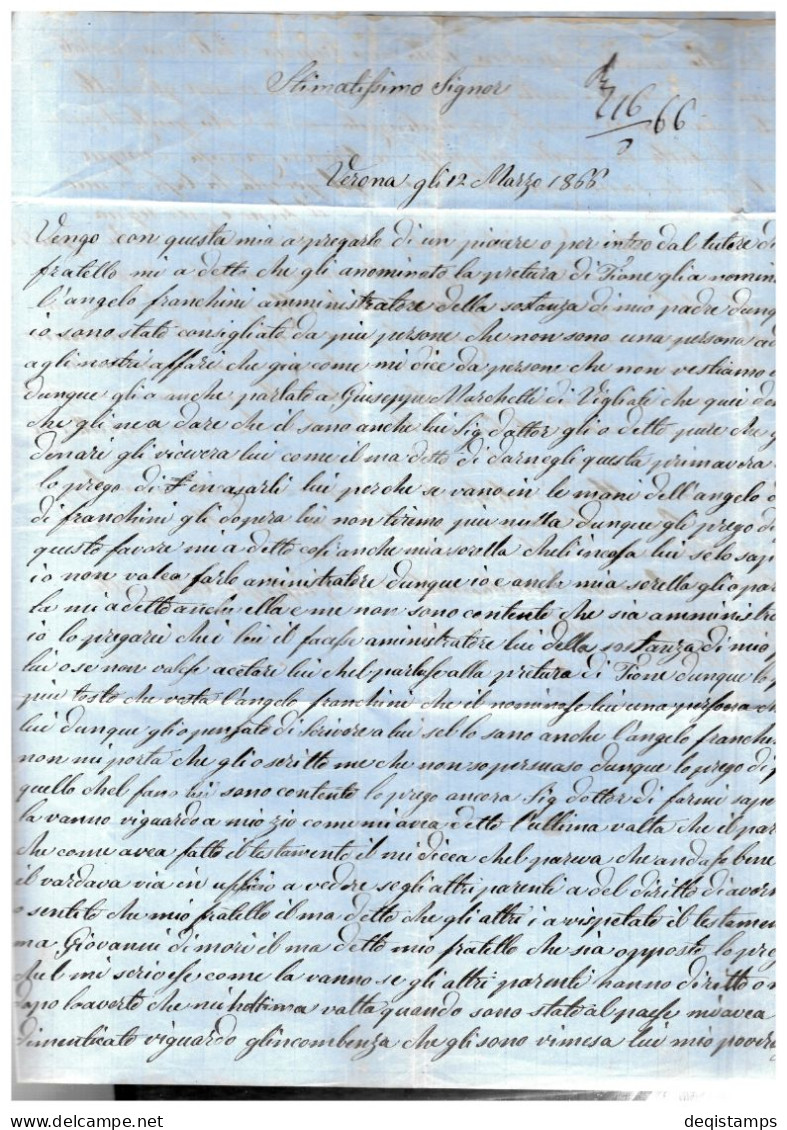 Stimatissimo Signor
16/3 66
Verona gli 12 Marzo 1866
Vengo con questa mia a pregarlo di un piacere o per inteso dal tutore di
fratello mi a detto che gli anominato la pretura di Tione glia nomin
l'angelo franchini amministratore della sostanza di mio padre dunq
io sono stato consigliato da piu persone che non sono una persona ad
agli nostri affari che gia come mi dice da persone che non vestiamo
dunque gli o anche parlato a Giuseppe Marchelli di Vigliati che qui de
che gli ne a dare che il sano anche lui Sig dottor gli o detto pure che
denari gli ricevera lui come il ma detto di darnegli questa primavera
lo prego di incasarli lui perche se vano in le mani dell'angelo
di franchini gli dopera lui non tiremo piu nulla dunque gli prego di
questo favore mi a detto cosi anche mia sorella cheli incasa lui se lo sap
io non valea farlo aministratore dunque io e anche mia sorella gli o par
la mi a detto anche ella e me non sono contento che sia amministra
io lo pregarei che lui il facese aministratore lui della sostanza di mio p
lui o se non valese acetare lui chel parlase alla pretura di Tione dunque lo p
piu tosto che resta l'angelo franchini che il nominase lui una persona
lui dunque gli o pensato di scrivere a lui seblo sano anche l'angelo franche
non mi porta che gli o scritto me che non so persuaso dunque lo prego di
quello chel fano lui sono contento lo prego ancora Sig dottor di farmi sape
la vanno riguardo a mio zio come mi avea detto l'ultima valta che il par
che come avea fatto il testamento il mi dicea chel pareva che andase bene
il vardava via in uffizio a vedere se gli altri parenti a del diritto di avern
o sentito che mio fratello il ma detto che gli altri i a rispetato il testamen
ma Giovanni di mori il ma detto mio fratello che sia opposto lo pre
chel mi scrivese come la vanno se gli altri parenti hanno diritto o
dapo loaverto che nell'ultima valta quando sono stato al paese mi avea
dimenticato riguardo glincombenza che gli sono rimesa lui mio povero
deqistamps